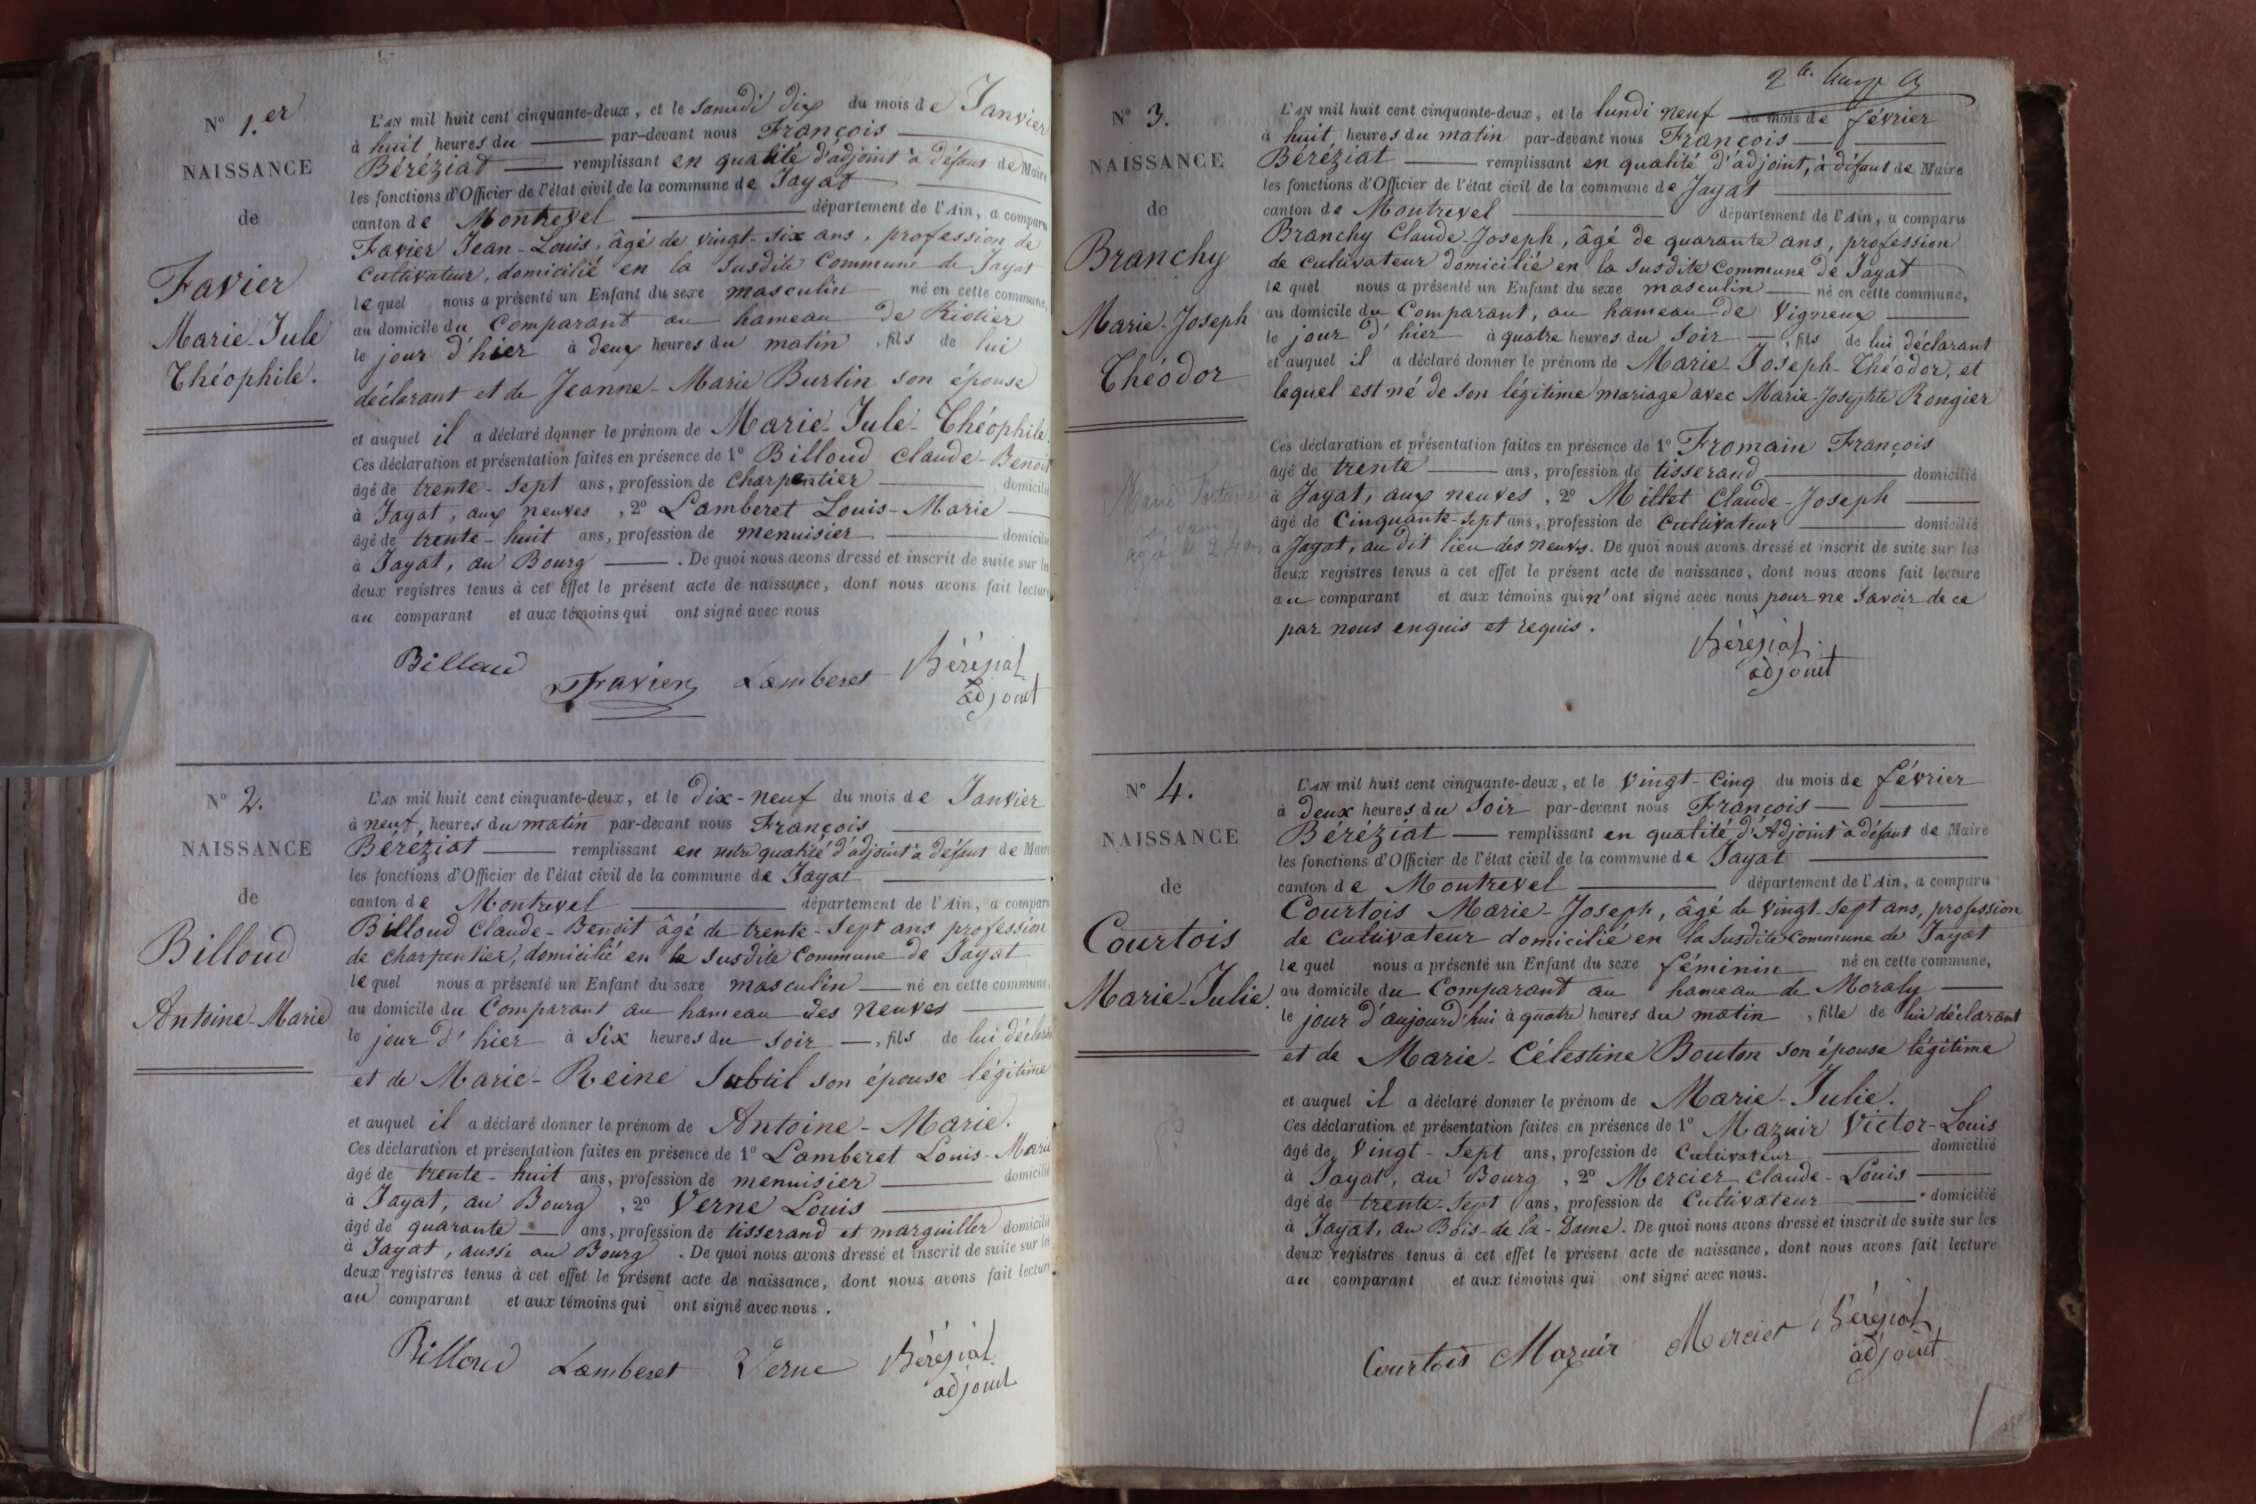 N° 1.er
NAISSANCE
de
Favier
Marie-Jule
Théophile.
L'AN mil huit cent cinquante-deux, et le samedi dix du mois de Janvier
à huit heures du par-devant nous François
Béréziat remplissant en qualité d'adjoint à défaut de Maire
les fonctions d'Officier de l'état civil de la commune de Jayat
canton de Montrevel département de l'Ain, a comparu
Favier Jean-Louis, âgé de vingt-six ans, profession de
cultivateur, domicilié en la susdite Commune de Jayat
lequel nous a présenté un Enfant du sexe masculin né en cette commune,
au domicile du Comparant au hameau de Riotier
le jour d'hier à deux heures du matin, fils de lui
déclarant et de Jeanne-Marie Burtin son épouse
et auquel il a déclaré donner le prénom de Marie-Jule-Théophile.
Ces déclaration et présentation faites en présence de 1° Billoud Claude-Benoit
âgé de trente-sept ans, profession de charpentier domicilié
à Jayat, aux neuves, 2° Lamberet Louis-Marie
âgé de trente-huit ans, profession de menuisier domicilié
à Jayat, au Bourg. De quoi nous avons dressé et inscrit de suite sur les
deux registres tenus à cet effet le présent acte de naissance, dont nous avons fait lecture
au comparant et aux témoins qui ont signé avec nous
Billoud Favier Lamberet Béréziat
adjoint
N° 2.
NAISSANCE
de
Billoud
Antoine-Marie
L'AN mil huit cent cinquante-deux, et le dix-neuf du mois de Janvier
à neuf heures du matin par-devant nous François
Béréziat remplissant en notre qualité d'adjoint à défaut de Maire
les fonctions d'Officier de l'état civil de la commune de Jayat
canton de Montrevel département de l'Ain, a comparu
Billoud Claude-Benoit âgé de trente-sept ans profession
de charpentier, domicilié en la susdite Commune de Jayat
lequel nous a présenté un Enfant du sexe masculin né en cette commune,
au domicile du Comparant au hameau des neuves
le jour d'hier à six heures du soir, fils de lui déclarant
et de Marie-Reine Subtil son épouse légitime
et auquel il a déclaré donner le prénom de Antoine-Marie.
Ces déclaration et présentation faites en présence de 1° Lamberet Louis-Marie
âgé de trente-huit ans, profession de menuisier domicilié
à Jayat, au Bourg, 2° Verne Louis
âgé de quarante ans, profession de tisserand et marguiller domicilié
à Jayat, aussi au Bourg. De quoi nous avons dressé et inscrit de suite sur les
deux registres tenus à cet effet le présent acte de naissance, dont nous avons fait lecture
au comparant et aux témoins qui ont signé avec nous.
Billoud Lamberet Verne Béréziat
adjoint
N° 3.
NAISSANCE
de
Branchy
Marie-Joseph
Théodor
L'AN mil huit cent cinquante-deux, et le lundi neuf du mois de février
à huit heures du matin par-devant nous François
Béréziat remplissant en qualité d'adjoint, à défaut de Maire
les fonctions d'Officier de l'état civil de la commune de Jayat
canton de Montrevel département de l'Ain, a comparu
Branchy Claude-Joseph, âgé de quarante ans, profession
de cultivateur domicilié en la susdite Commune de Jayat
lequel nous a présenté un Enfant du sexe masculin né en cette commune,
au domicile du Comparant, au hameau de Vigneux
le jour d'hier à quatre heures du soir, fils de lui déclarant
et auquel il a déclaré donner le prénom de Marie-Joseph-Théodor, et
lequel est né de son légitime mariage avec Marie-Josephte Rongier
Ces déclaration et présentation faites en présence de 1° Fromain François
âgé de trente ans, profession de tisserand domicilié
à Jayat, aux neuves, 2° Millet Claude-Joseph
âgé de Cinquante-sept ans, profession de cultivateur domicilié
à Jayat, au dit lieu des neuves. De quoi nous avons dressé et inscrit de suite sur les
deux registres tenus à cet effet le présent acte de naissance, dont nous avons fait lecture
au comparant et aux témoins qui n'ont signé avec nous pour ne savoir de ce
par nous enquis et requis.
Béréziat
adjoint
N° 4.
NAISSANCE
de
Courtois
Marie-Julie.
L'AN mil huit cent cinquante-deux, et le vingt-cinq du mois de février
à deux heures du soir par-devant nous François
Béréziat remplissant en qualité d'Adjoint à défaut de Maire
les fonctions d'Officier de l'état civil de la commune de Jayat
canton de Montrevel département de l'Ain, a comparu
Courtois Marie-Joseph, âgé de vingt-sept ans, profession
de cultivateur domicilié en la susdite Commune de Jayat
lequel nous a présenté un Enfant du sexe féminin né en cette commune,
au domicile du Comparant au hameau de Moraly
le jour d'aujourd'hui à quatre heures du matin, fille de lui déclarant
et de Marie-Célestine Bouton son épouse légitime
et auquel il a déclaré donner le prénom de Marie-Julie.
Ces déclaration et présentation faites en présence de 1° Mazuir Victor-Louis
âgé de Vingt-sept ans, profession de Cultivateur domicilié
à Jayat, au Bourg, 2° Mercier Claude-Louis
âgé de trente-sept ans, profession de Cultivateur domicilié
à Jayat, au Bois-de la-Dame. De quoi nous avons dressé et inscrit de suite sur les
deux registres tenus à cet effet le présent acte de naissance, dont nous avons fait lecture
au comparant et aux témoins qui ont signé avec nous.
Courtois Mazuir Mercier Béréziat
adjoint